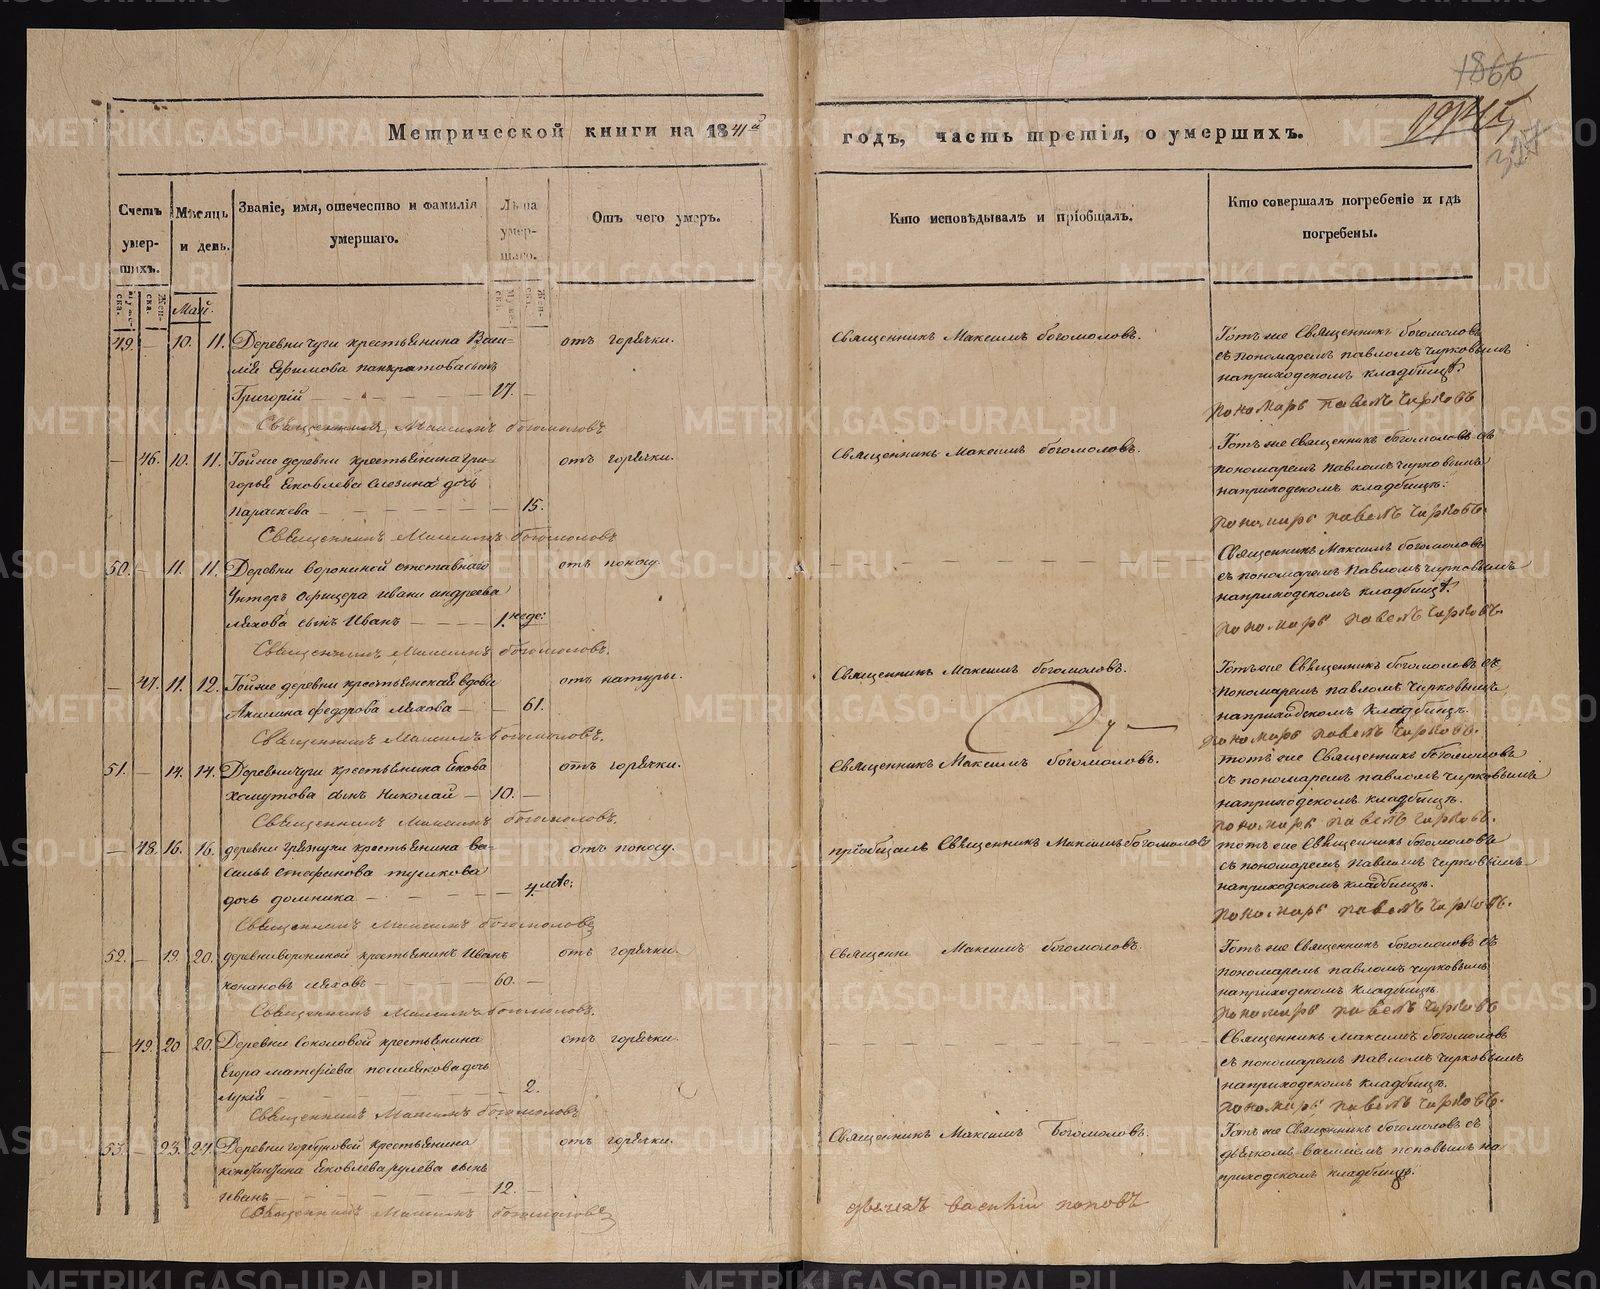 Метрической книги на 1841й
годъ, часть третія, о умершихъ.
1866
Счетъ умер-шихъ.
Мѣсяцъ и день.
Званіе, имя, отечество и фамилія умершаго.
Лѣта умер-шаго.
Отъ чего умеръ.
Кто исповѣдывалъ и пріобщалъ.
Кто совершалъ погребеніе и гдѣ погребены.
Май.
49. — 10. 11. Деревни Чуги крестьянина Васи-
лія Ефимова Панкратова сынъ
Григорій — 17. —
отъ горячки.
Священникъ Максимъ Богомоловъ.
Тотъ же Священникъ Богомоловъ
съ пономаремъ Павломъ Чирковымъ
на приходскомъ кладбищѣ.
Пономарь Павелъ Чирковъ
Священникъ Максимъ Богомоловъ
— 46. 10. 11. Той же деревни крестьянина Гри-
горья Яковлева дочь
Параскева — 15.
отъ горячки.
Священникъ Максимъ Богомоловъ.
Тотъ же Священникъ Богомоловъ съ
пономаремъ Павломъ Чирковымъ
на приходскомъ кладбищѣ.
Пономарь Павелъ Чирковъ.
Священникъ Максимъ Богомоловъ
50. — 11. 11. Деревни Ворониной отставнаго
Унтеръ Офицера Ивана Андреева
Ляхова сынъ Иванъ — 1. неде:
отъ поносу.
Священникъ Максимъ Богомоловъ
съ пономаремъ Павломъ Чирковымъ
на приходскомъ кладбищѣ.
Пономарь Павелъ Чирковъ.
Священникъ Максимъ Богомоловъ.
— 47. 11. 12. Той же деревни крестьянская вдова
Акилина Федорова Ляхова — 61.
отъ натуры.
Священникъ Максимъ Богомоловъ.
Тотъ же Священникъ Богомоловъ съ
пономаремъ Павломъ Чирковымъ
на приходскомъ кладбищѣ.
Пономарь Павелъ Чирковъ.
Священникъ Максимъ Богомоловъ.
51. — 14. 14. Деревни Чуги крестьянина Якова
Хомутова сынъ Николай — 10. —
отъ горячки.
Священникъ Максимъ Богомоловъ.
тотъ же Священникъ Богомоловъ
съ пономаремъ Павломъ Чирковымъ
на приходскомъ кладбищѣ.
Пономарь Павелъ Чирковъ.
Священникъ Максимъ Богомоловъ.
— 48. 16. 16. деревни крестьянина Ва-
силья Стефанова
дочь Домника — 4
отъ поносу.
пріобщалъ Священникъ Максимъ Богомоловъ
тотъ же Священникъ Богомоловъ
съ пономаремъ Павломъ Чирковымъ
на приходскомъ кладбищѣ.
Пономарь Павелъ Чирковъ.
Священникъ Максимъ Богомоловъ
52. — 19. 20. деревни Ворониной крестьянинъ Иванъ
Конановъ Ляховъ — 60. —
отъ горячки.
Священни Максимъ Богомоловъ.
Тотъ же Священникъ Богомоловъ съ
пономаремъ Павломъ Чирковымъ
на приходскомъ кладбищѣ.
Пономарь Павелъ Чирковъ
Священникъ Максимъ Богомоловъ.
— 49. 20 20. Деревни Соколовой крестьянина
Егора Матфіева Полякова дочь
Лукія — 2.
отъ горячки.
Священникъ Максимъ Богомоловъ
съ пономаремъ Павломъ Чирковымъ
на приходскомъ кладбищѣ.
Пономарь Павелъ Чирковъ.
Священникъ Максимъ Богомоловъ
53. — 23. 24. Деревни Горбуновой крестьянина
Константина Яковлева Рулева сынъ
Иванъ — 12. —
отъ горячки.
Священникъ Максимъ Богомоловъ.
Тотъ же Священникъ Богомоловъ съ
дьячкомъ Василіемъ Поповымъ на
приходскомъ кладбищѣ.
Священникъ Максимъ Богомоловъ
дьячекъ Василій Поповъ
METRIKI.GASO-URAL.RU